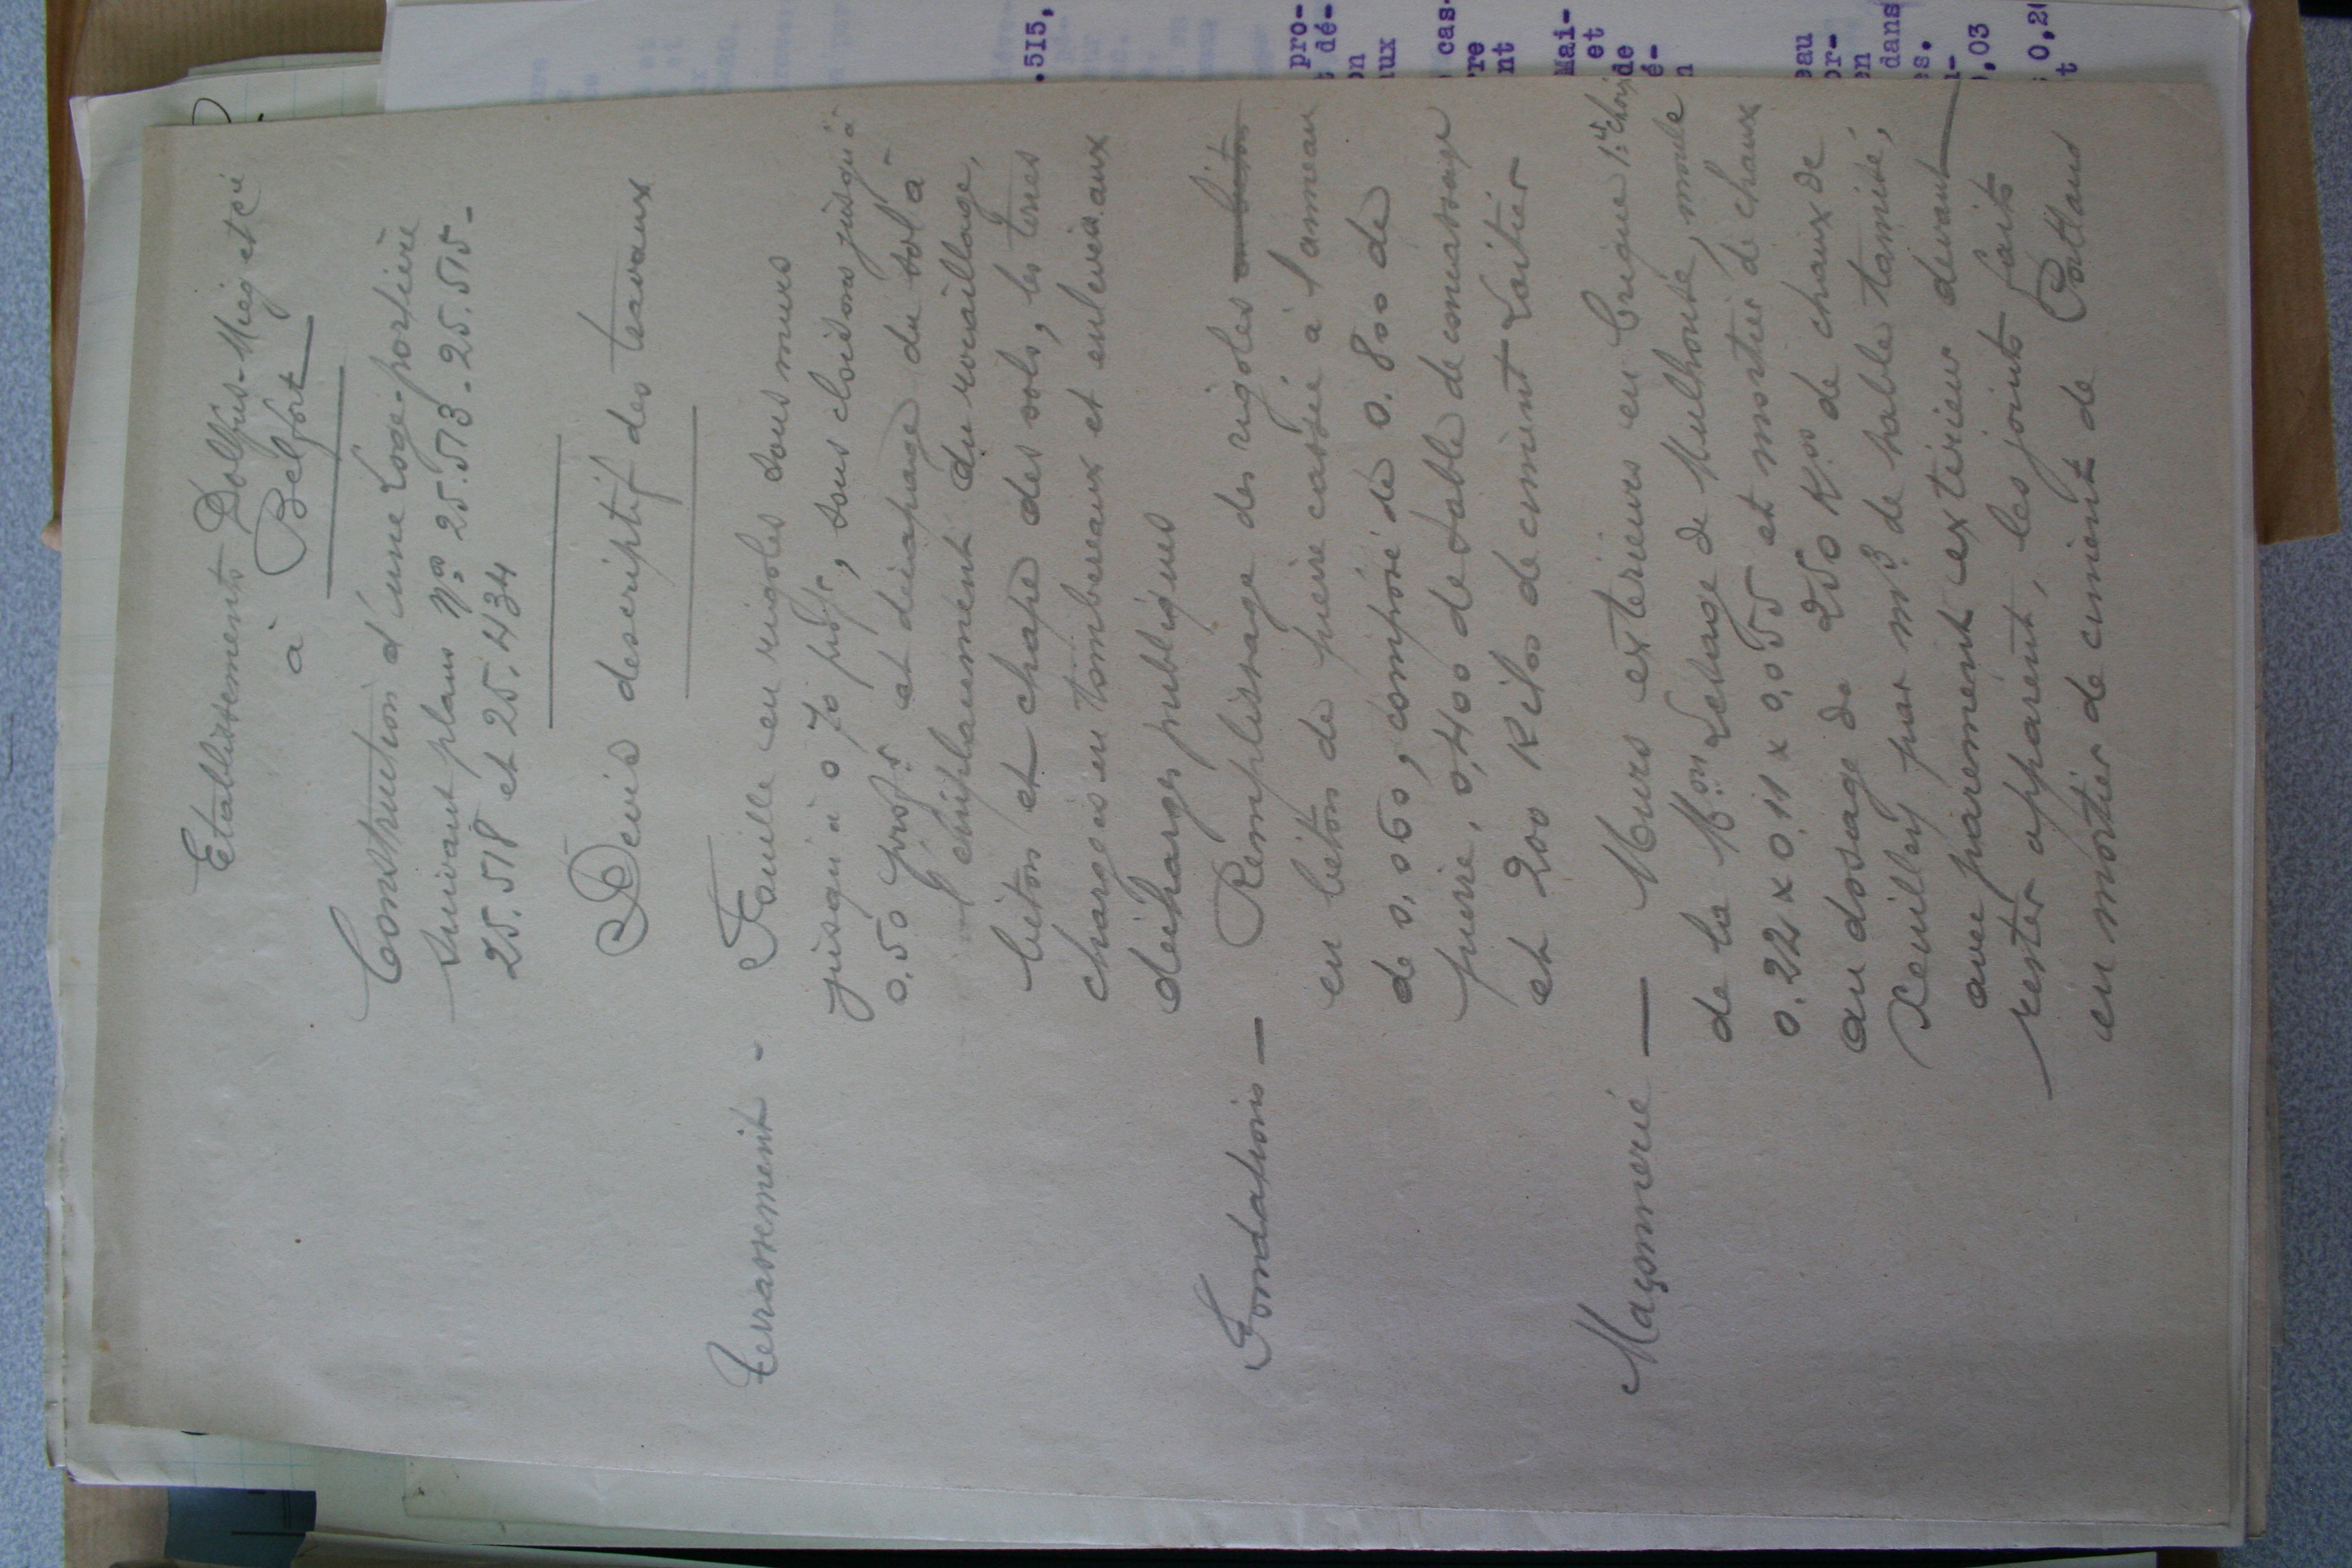 Etablissements Dolfus-Mieg et Cie
à Belfort
Construction d'une Loge-portière
Suivant plans Nos 25.513 - 25.515 -
25.518 et 25.434
Devis descriptif des travaux
Terrassement - Fouille en rigoles sous murs
jusqu'à 0 70 profr, sous cloisons jusqu'à
0.50 profr. et décapage du sol à
l'emplacement du rocaillage,
béton et chape des sols, les terres
chargées en tombereaux et enlevées aux
décharges publiques
Fondations — Remplissage des rigoles en béton
en béton de pierre cassée à l'anneau
de 0,060, composé de 0.800 de
pierre, 0,400 de sable de concassage
et 200 Kilos de ciment Laitier
Maçonnerie — Murs extérieurs en brique 1er choix
de la Mon Lesage de Mulhouse, moule
0.22 x 0,11 x 0,055 et mortier de chaux
au dosage de 250 Kos de chaux de
Xeuilley par m3 de sable tamisé,
avec parement extérieur devant
rester apparent, les joints faits
en mortier de ciment de Portland
.515,
pro-
dé-
on
aux
cas-
rre
nt
Mai-
et
de
é-
n
eau
or-
en
dans
es.
n-
0,03
0,20
t